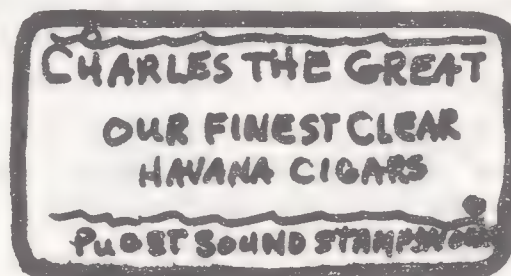 CHARLES THE GREAT
OUR FINEST CLEAR
HAVANA CIGARS
PUGET SOUND STAMP